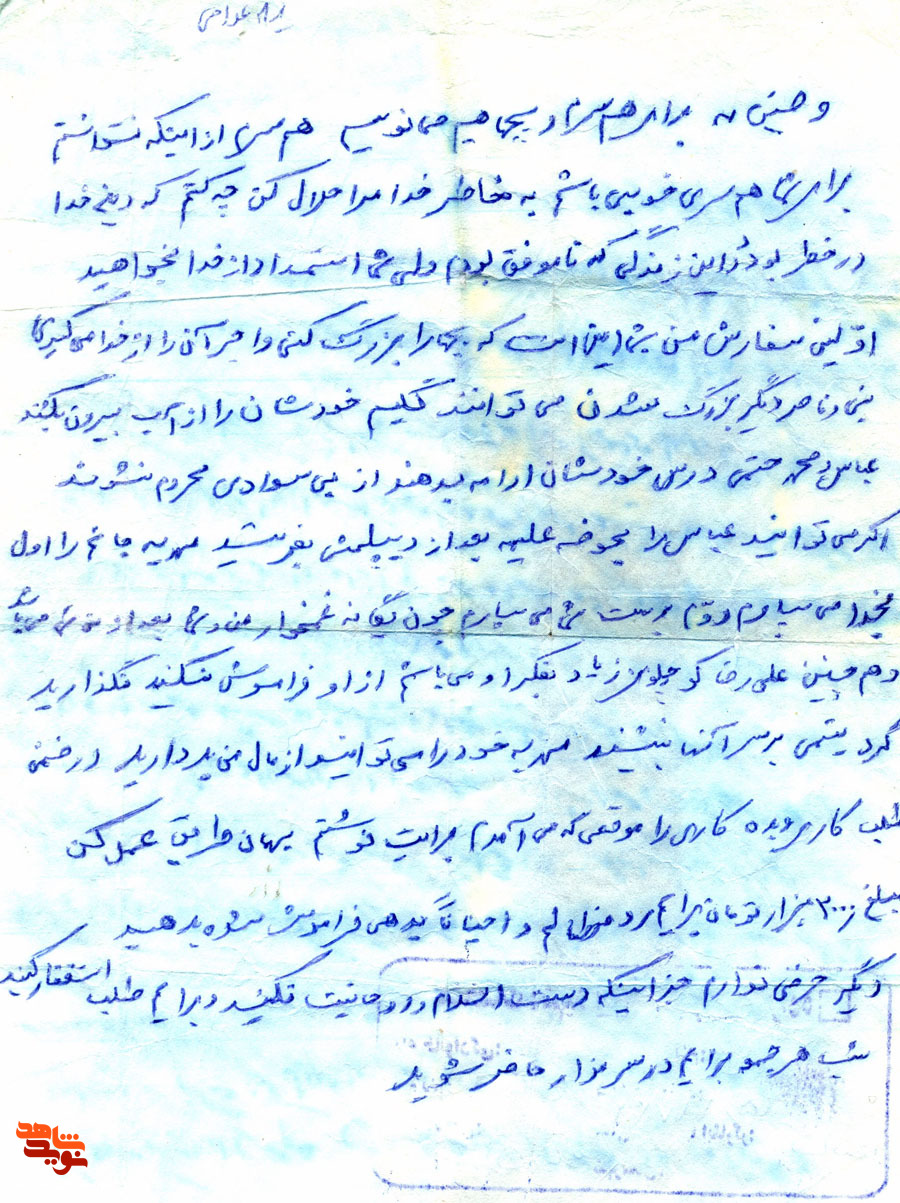 وصیتی که برای همسرم و بچهایم می نویسم همسرم از اینکه نتوانستم
برای شما همسری خوبی باشم به خاطر خدا مرا حلال کن چه کنم که دین خدا
در خطر بود در این زندگی که ناموفق بودم ولی شما استمداد از خدا بخواهید
اولین سفارش من بشما این است که بچها را بزرگ کنی واجر آن را از خدا می گیری
دیگر بزرگ شدن می توانند گلیم خودشان را از آب بیرون بکشند
عباس و محمد حتمی درس خودشان ادامه بدهند از بی سوادی محروم نشوند
اگر می توانید عباس را بحوضه علمیه بعد از دیپلمش بفرستید مهدیه جانم را اول
بخدا می سپارم دوم بدست شما می سپارم چون یگانه غمخوار من و شما بعد از من شما می باشد
و هم چنین علی رضا کوچلو من زیاد بفکر او می باشم از او فراموش نکنید نگذارید
گرد یتمی بر سر آنها بنشیند مهریه خود را می توانید از مال من بردارید در ضمن
طلب کاری وبده کاری را موقعی که می آمدم برایت نوشتم بهمان طریق عمل کن
مبلغ ۳۰۰۰ هزار تومان برایم رد مظالم و احیاناً بدهی فراموش شده بدهید
دیگر عرضی ندارم جز اینکه دست از اسلام و روحانیت نکشید و برایم طلب استغفار کنید
شب هر جمعه برایم در سر مزار حاضر شوید
نوید شاهد